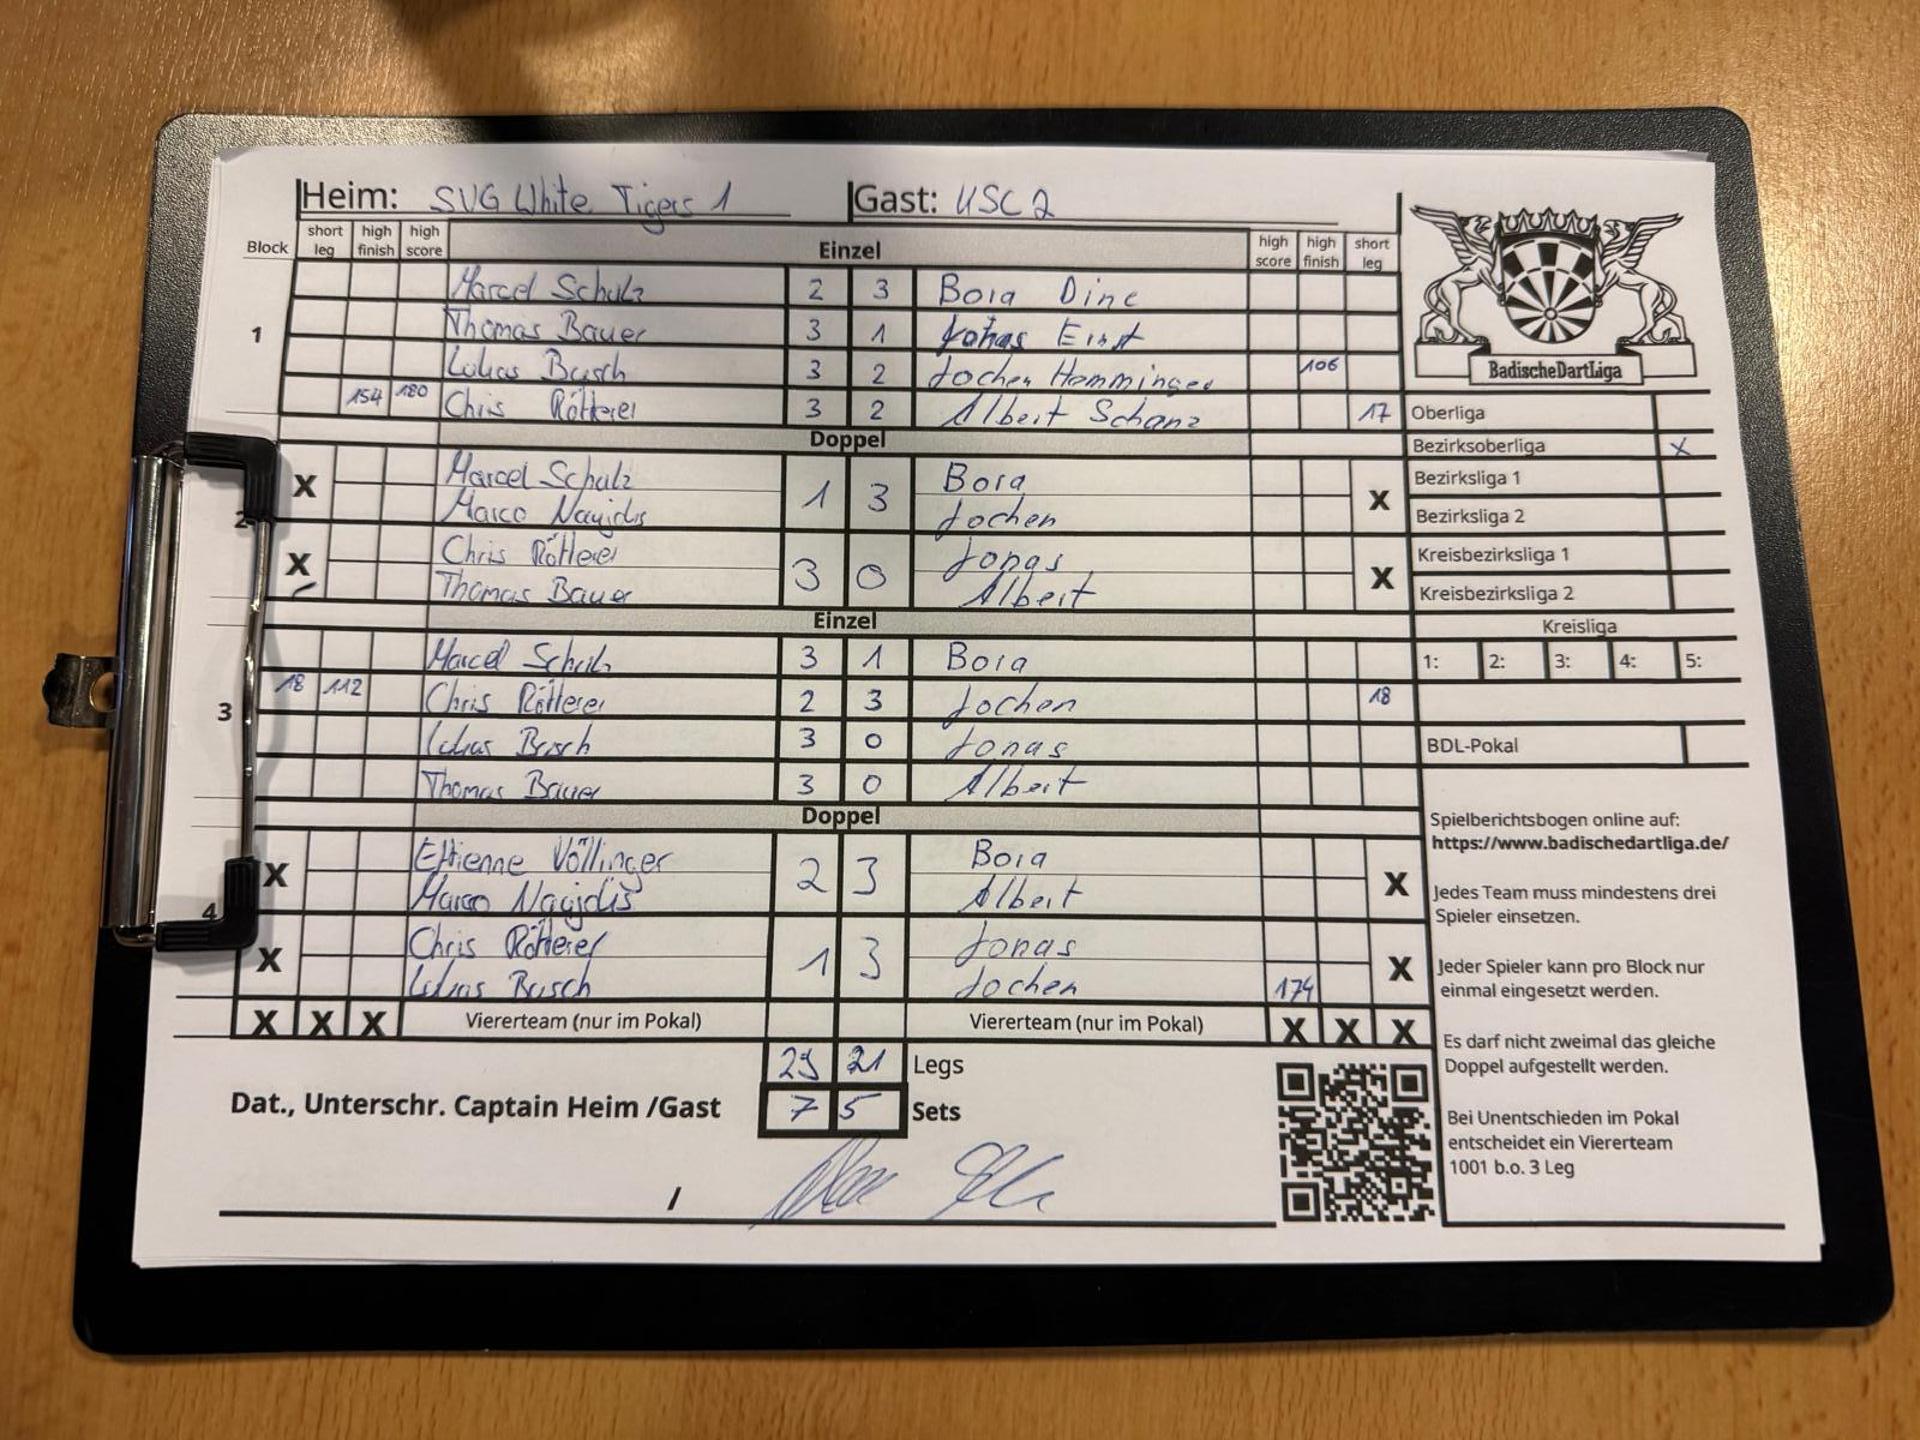 Heim: SVG White Tigers 1 Gast: USC 2
Block short leg high finish high score Einzel high score high finish short leg
1
Marcel Schulz 2 3 Bora Dinc
Thomas Bauer 3 1 Jonas Ernst
Lukas Busch 3 2 Jochen Hemminger 106
154 180 Chris Rötterer 3 2 Albert Schanz 17
Doppel
2
X Marcel Schulz 1 3 Bora X
Marco Najjdis Jochen
X Chris Rötterer 3 0 Jonas X
Thomas Bauer Albert
Einzel
3
Marcel Schulz 3 1 Bora
18 112 Chris Rötterer 2 3 Jochen 18
Lukas Busch 3 0 Jonas
Thomas Bauer 3 0 Albert
Doppel
4
X Ettienne Völlinger 2 3 Bora X
Marco Najjdis Albert
X Chris Rötterer 1 3 Jonas X
Lukas Busch Jochen 174
X X X Viererteam (nur im Pokal) Viererteam (nur im Pokal) X X X
29 21 Legs
Dat., Unterschr. Captain Heim /Gast 7 5 Sets
/
BadischeDartLiga
Oberliga
Bezirksoberliga X
Bezirksliga 1
Bezirksliga 2
Kreisbezirksliga 1
Kreisbezirksliga 2
Kreisliga
1: 2: 3: 4: 5:
BDL-Pokal
Spielberichtsbogen online auf:
https://www.badischedartliga.de/
Jedes Team muss mindestens drei
Spieler einsetzen.
Jeder Spieler kann pro Block nur
einmal eingesetzt werden.
Es darf nicht zweimal das gleiche
Doppel aufgestellt werden.
Bei Unentschieden im Pokal
entscheidet ein Viererteam
1001 b.o. 3 Leg